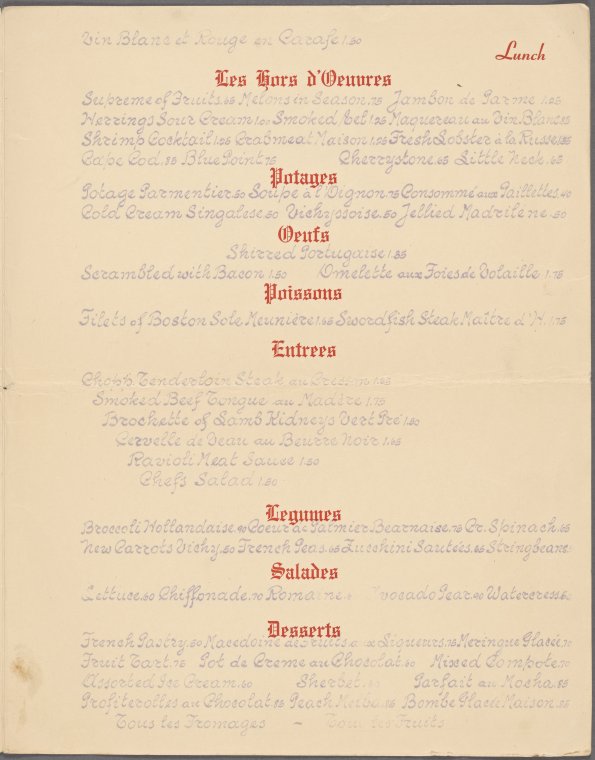 Vin Blanc et Rouge en Carafe 1.50
Lunch
Les Hors d'Oeuvres
Supreme of Fruits.65 Melons in Season.75 Jambon de Parme 1.25
Herrings Sour Cream 1.00 Smoked Eel 1.25 Maquereau au Vin Blanc 85
Shrimp Cocktail 1.25 Crabmeat Maison 1.25 Fresh Lobster à la Russe
Cape Cod.85 Blue Point 75 Cherrystone.65 Little Neck.65
Potages
Potage Parmentier.50 Soupe à l'Oignon.75 Consommé aux Paillettes.40
Cold Cream Singalese.50 Vichyssoise.50 Jellied Madrilène.50
Oeufs
Shirred Portugaise 1.35
Scrambled with Bacon 1.50 Omelette aux Foies de Volaille 1.75
Poissons
Filets of Boston Sole Meunière 1.65 Swordfish Steak Maître d'H. 1.75
Entrees
Chopp. Tenderloin Steak au Cresson 1.65
Smoked Beef Tongue au Madère 1.75
Brochette of Lamb Kidneys Vert Pré 1.80
Cervelle de Veau au Beurre Noir 1.65
Ravioli Meat Sauce 1.50
Chefs Salad 1.50
Legumes
Broccoli Hollandaise.90 Coeur de Palmier Bearnaise.75 Cr. Spinach.65
New Carrots Vichy.50 French Peas.65 Zucchini Sautées.65 Stringbeans
Salades
Lettuce.60 Chiffonade.70 Romaine Avocado Pear.90 Watercress
Desserts
French Pastry.50 Macedoine de Fruits aux Liqueurs.75 Meringue Glacée.70
Fruit Tart.75 Pot de Creme au Chocolat.60 Mixed Compote.70
Assorted Ice Cream.60 Sherbet Parfait au Moka.85
Profiterolles au Chocolat.85 Peach Melba Bombe Glacée Maison.85
Tous les Fromages – Tous les Fruits